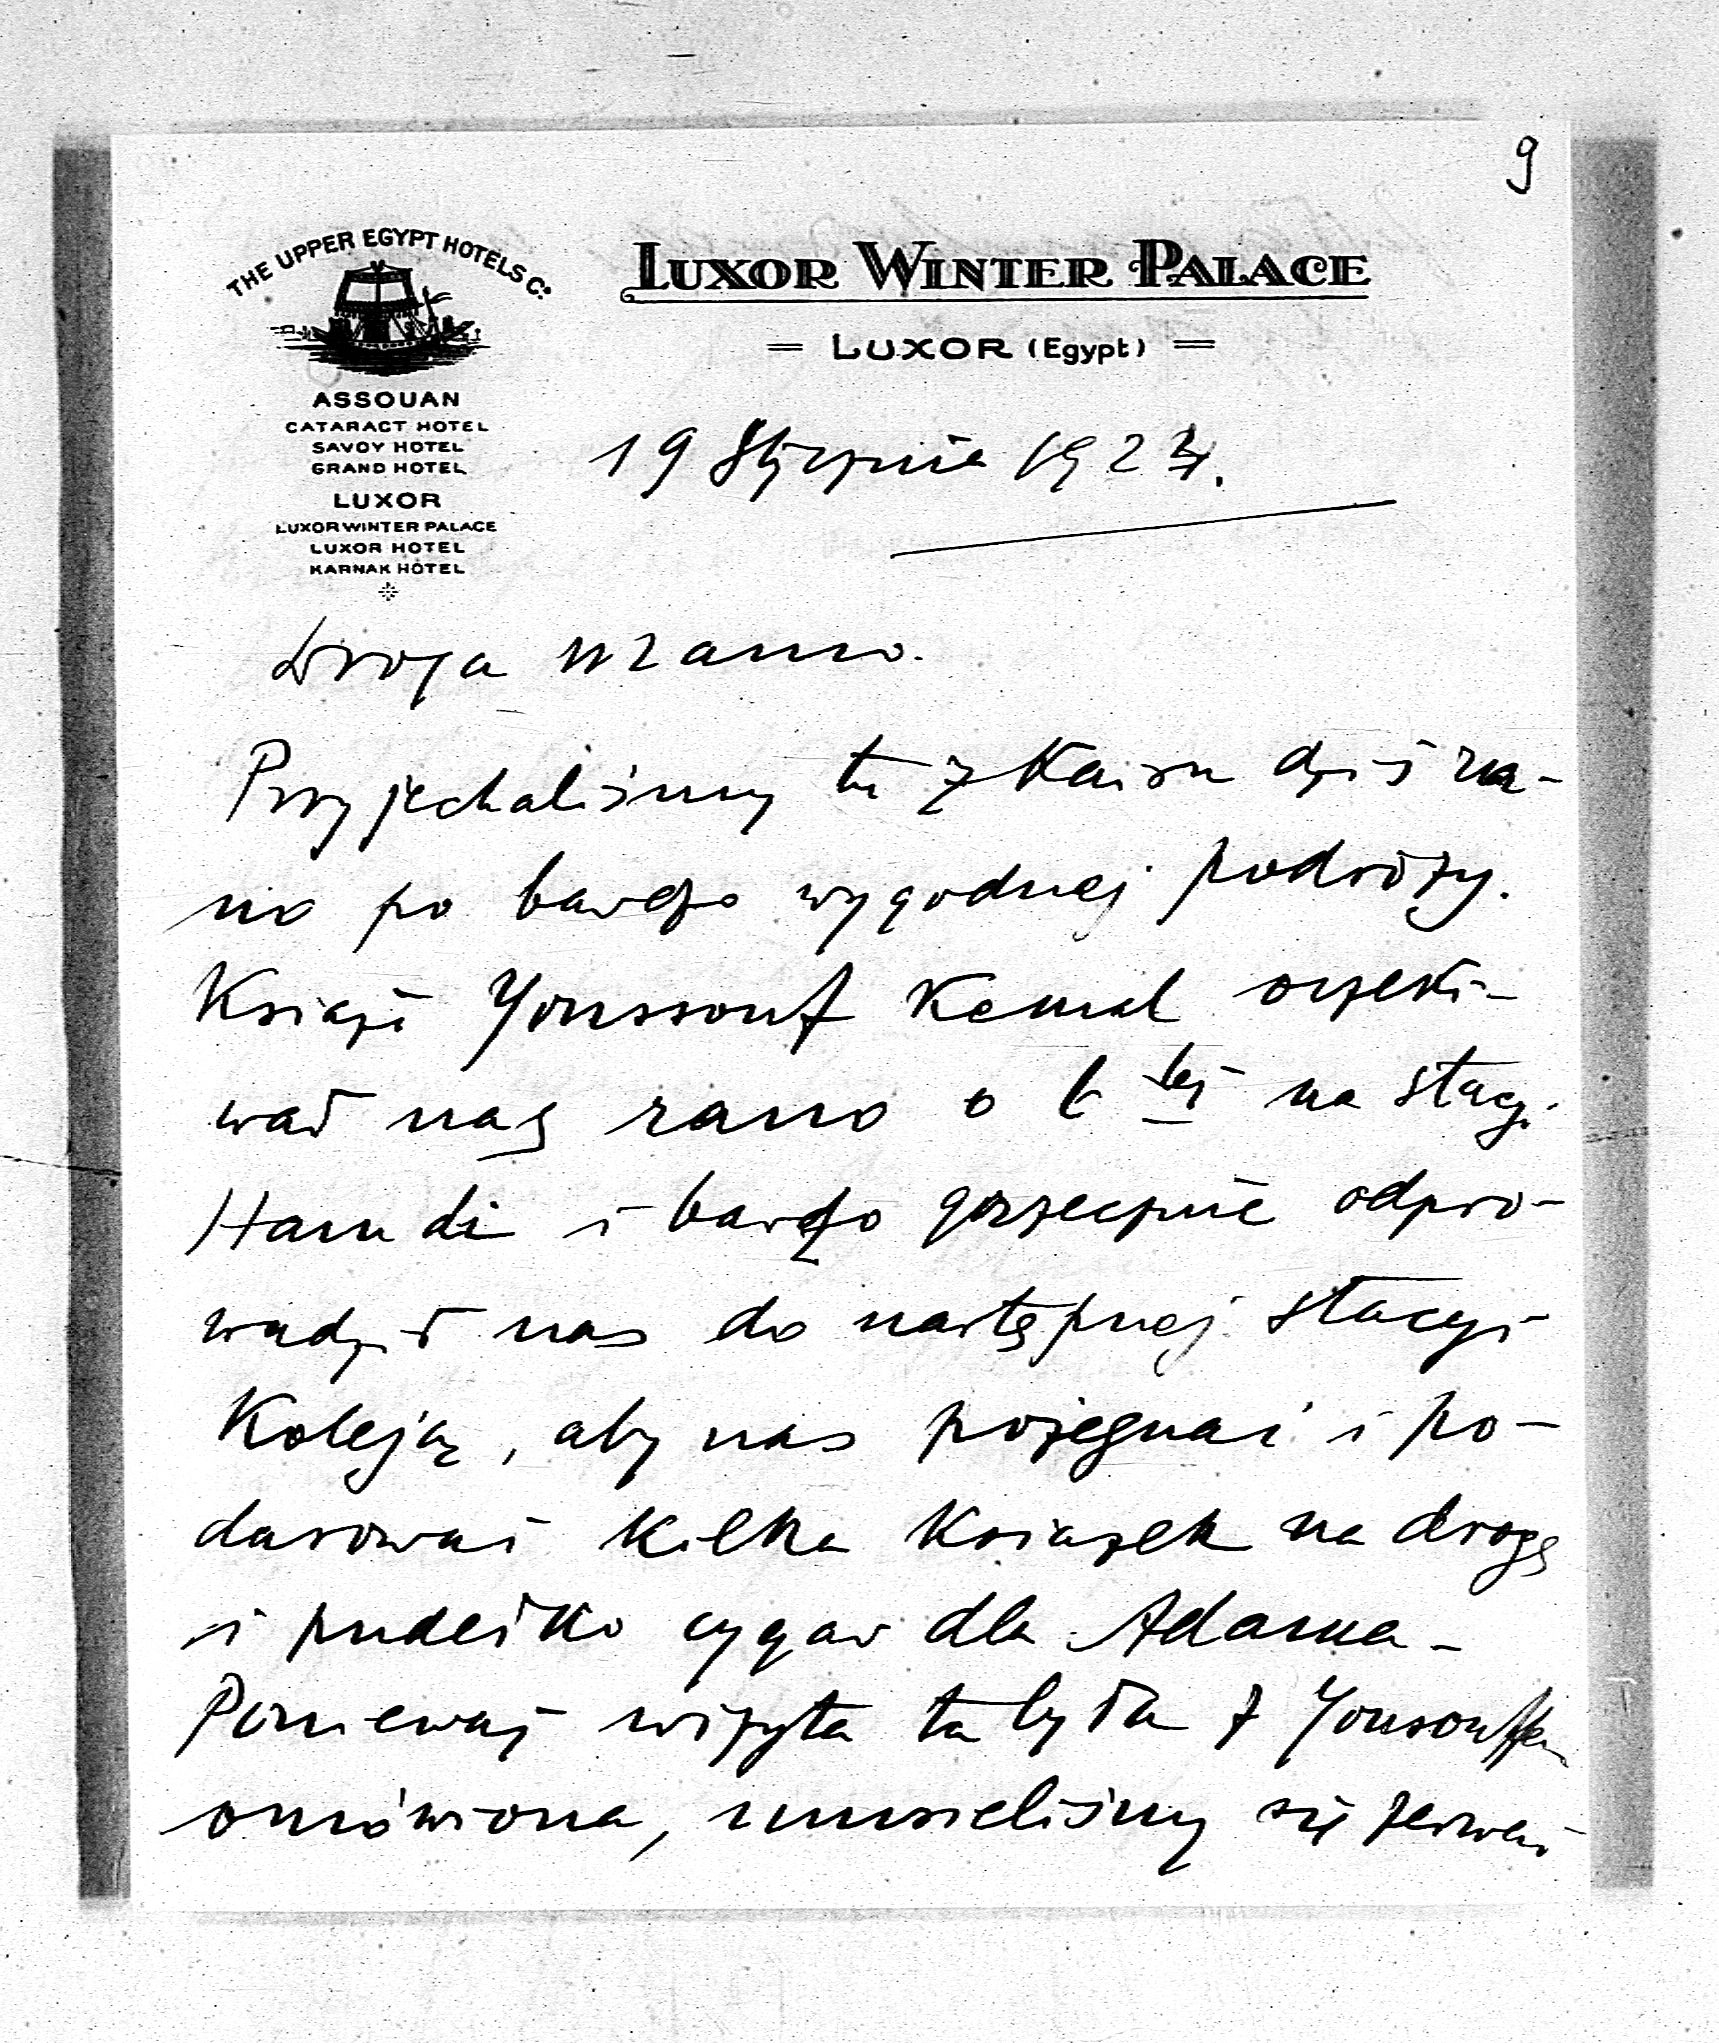 9
THE UPPER EGYPT HOTELS Co.
LUXOR WINTER PALACE
= LUXOR (Egypt) =
ASSOUAN
CATARACT HOTEL
SAVOY HOTEL
GRAND HOTEL
LUXOR
LUXOR WINTER PALACE
LUXOR HOTEL
KARNAK HOTEL
19 Stycznia 192
Droga Mamo.
Przyjechaliśmy tu z Kairu dziś ra-
no po bardzo wygodnej podróży.
Książe Youssouf Kemal oczeki-
wał nas rano o 6 tej na stacji
Hamdi i bardzo grzecznie odpro-
wadził nas do następnej stacyi
Koleją, aby nas pożegnać i po-
darować kilka książek na drogę
i pudełko cygar dla Adama -
Ponieważ wizyta ta była z
omówiona, musieliśmy się zerwać